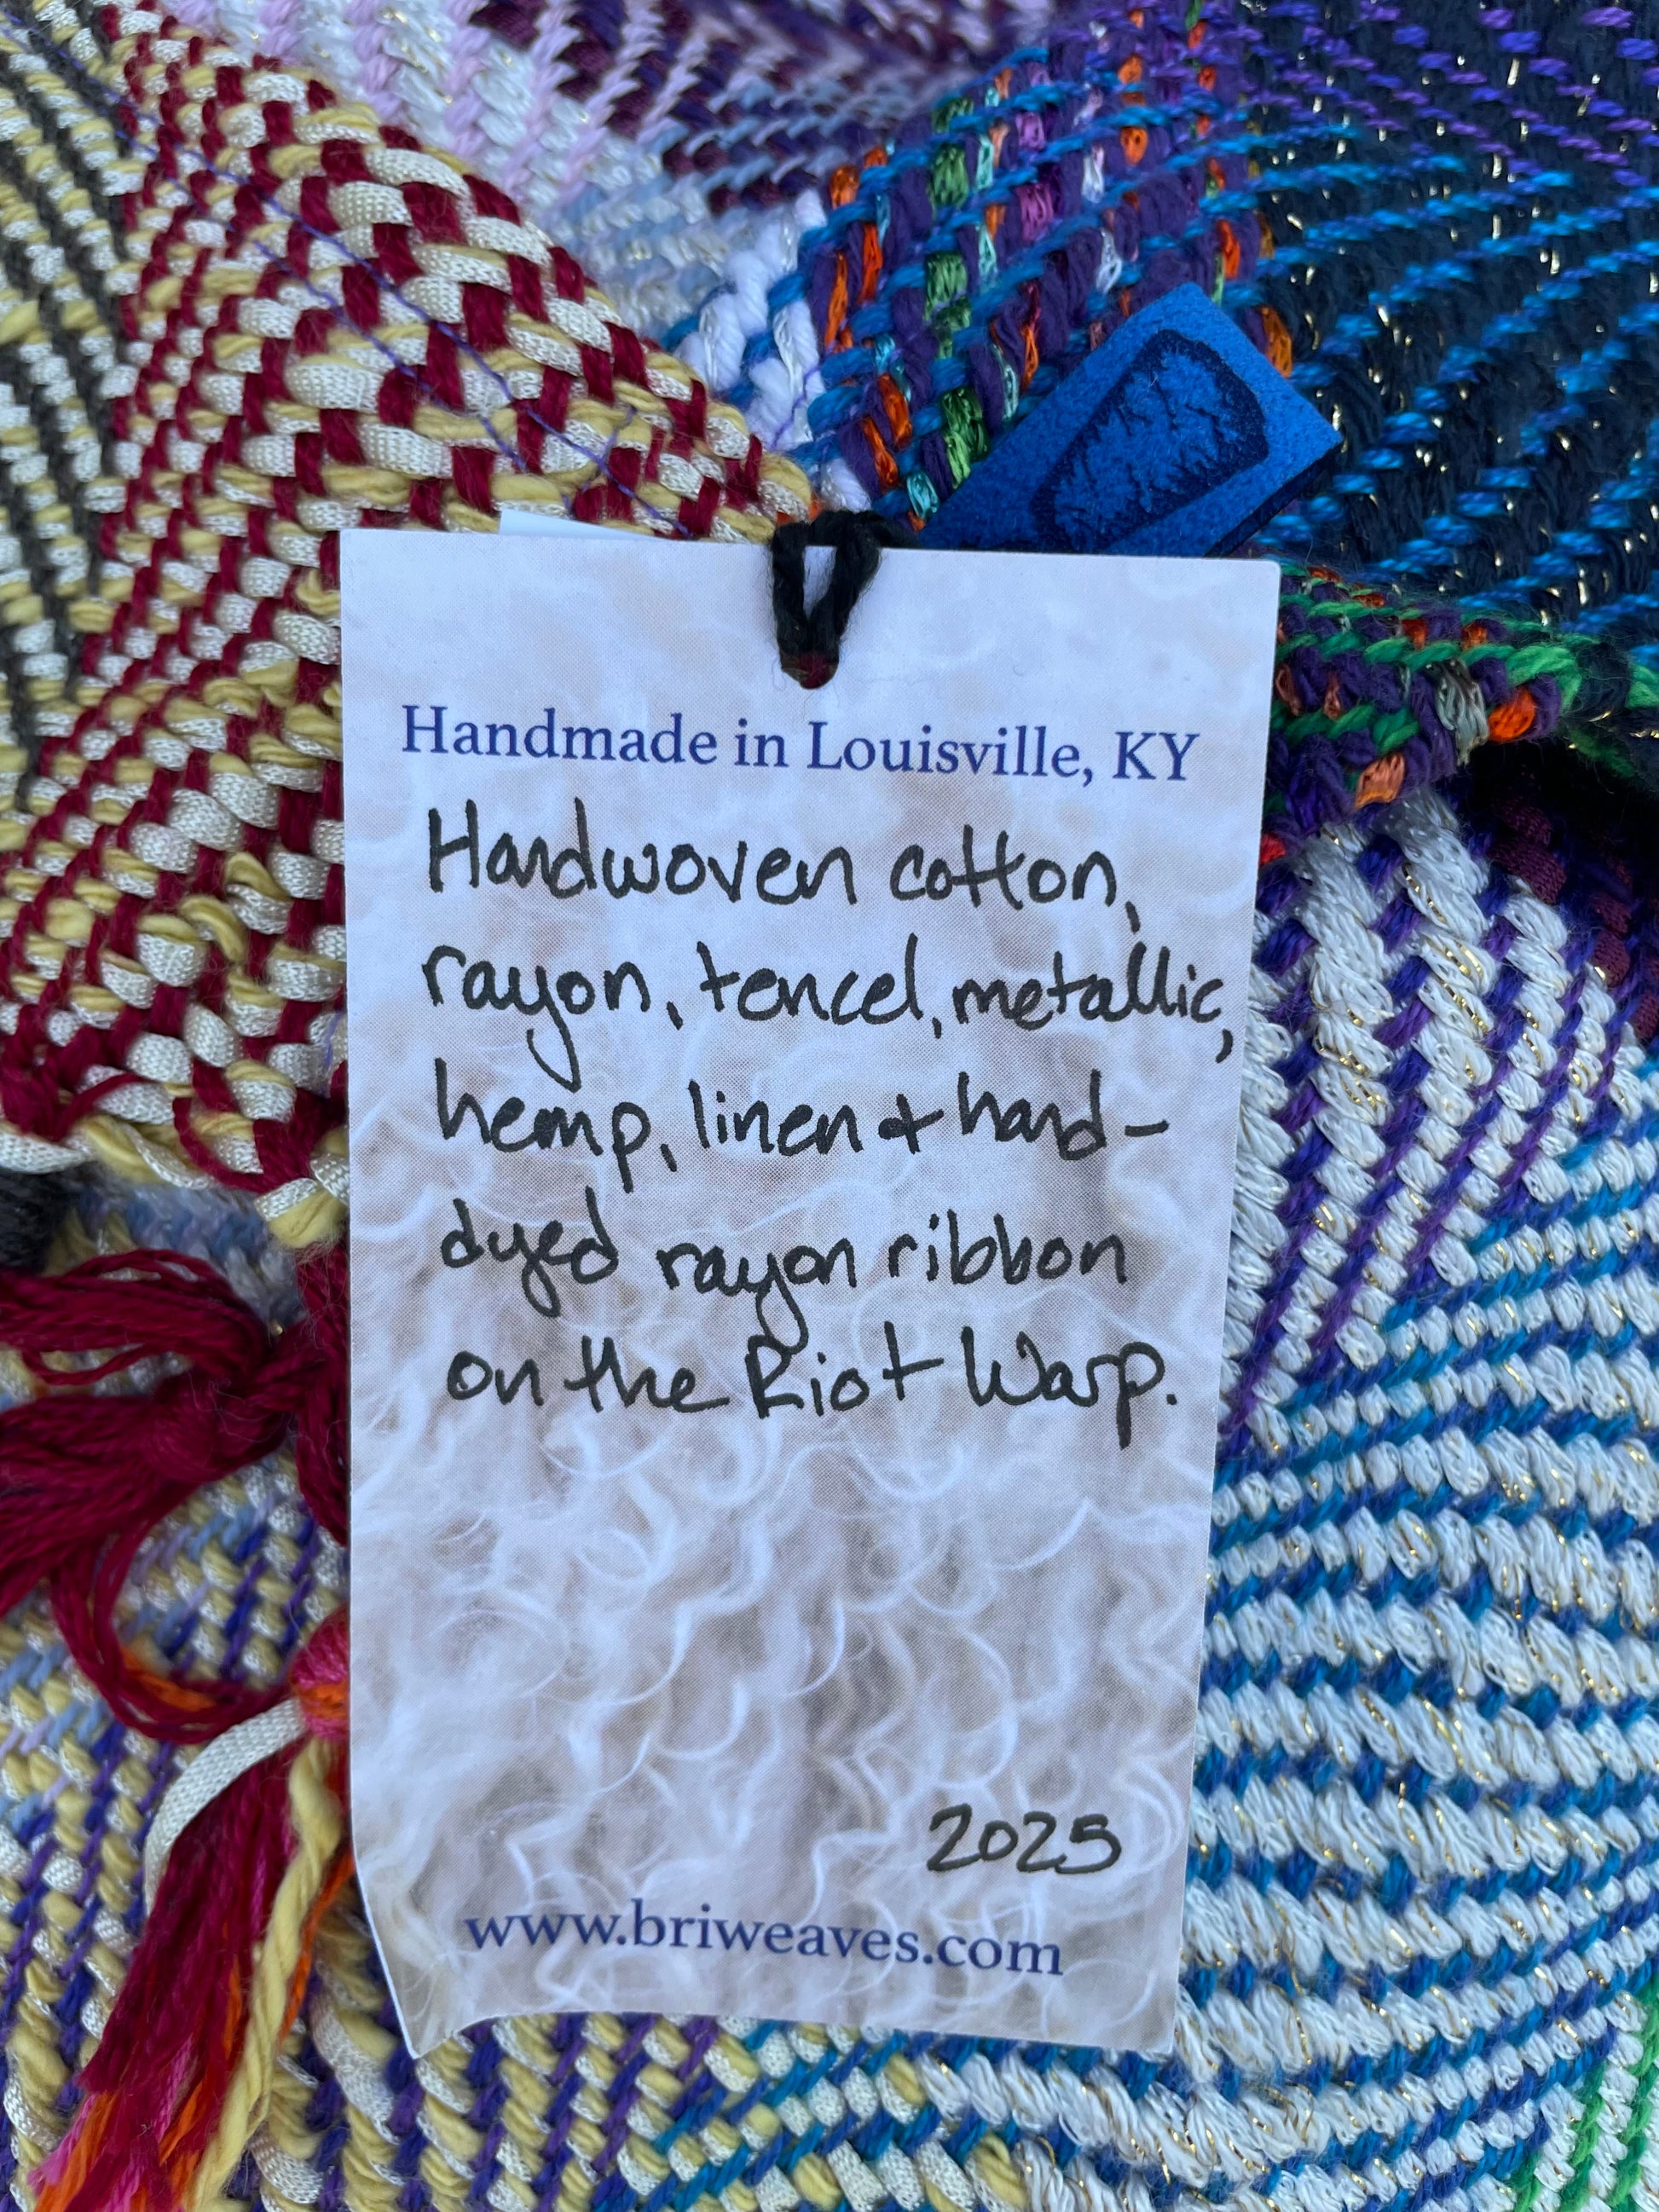 Handmade in Louisville, KY
Handwoven cotton,
rayon, tencel, metallic,
hemp, linen + hand-
dyed rayon ribbon
on the Riot Warp.
2025
www.briweaves.com